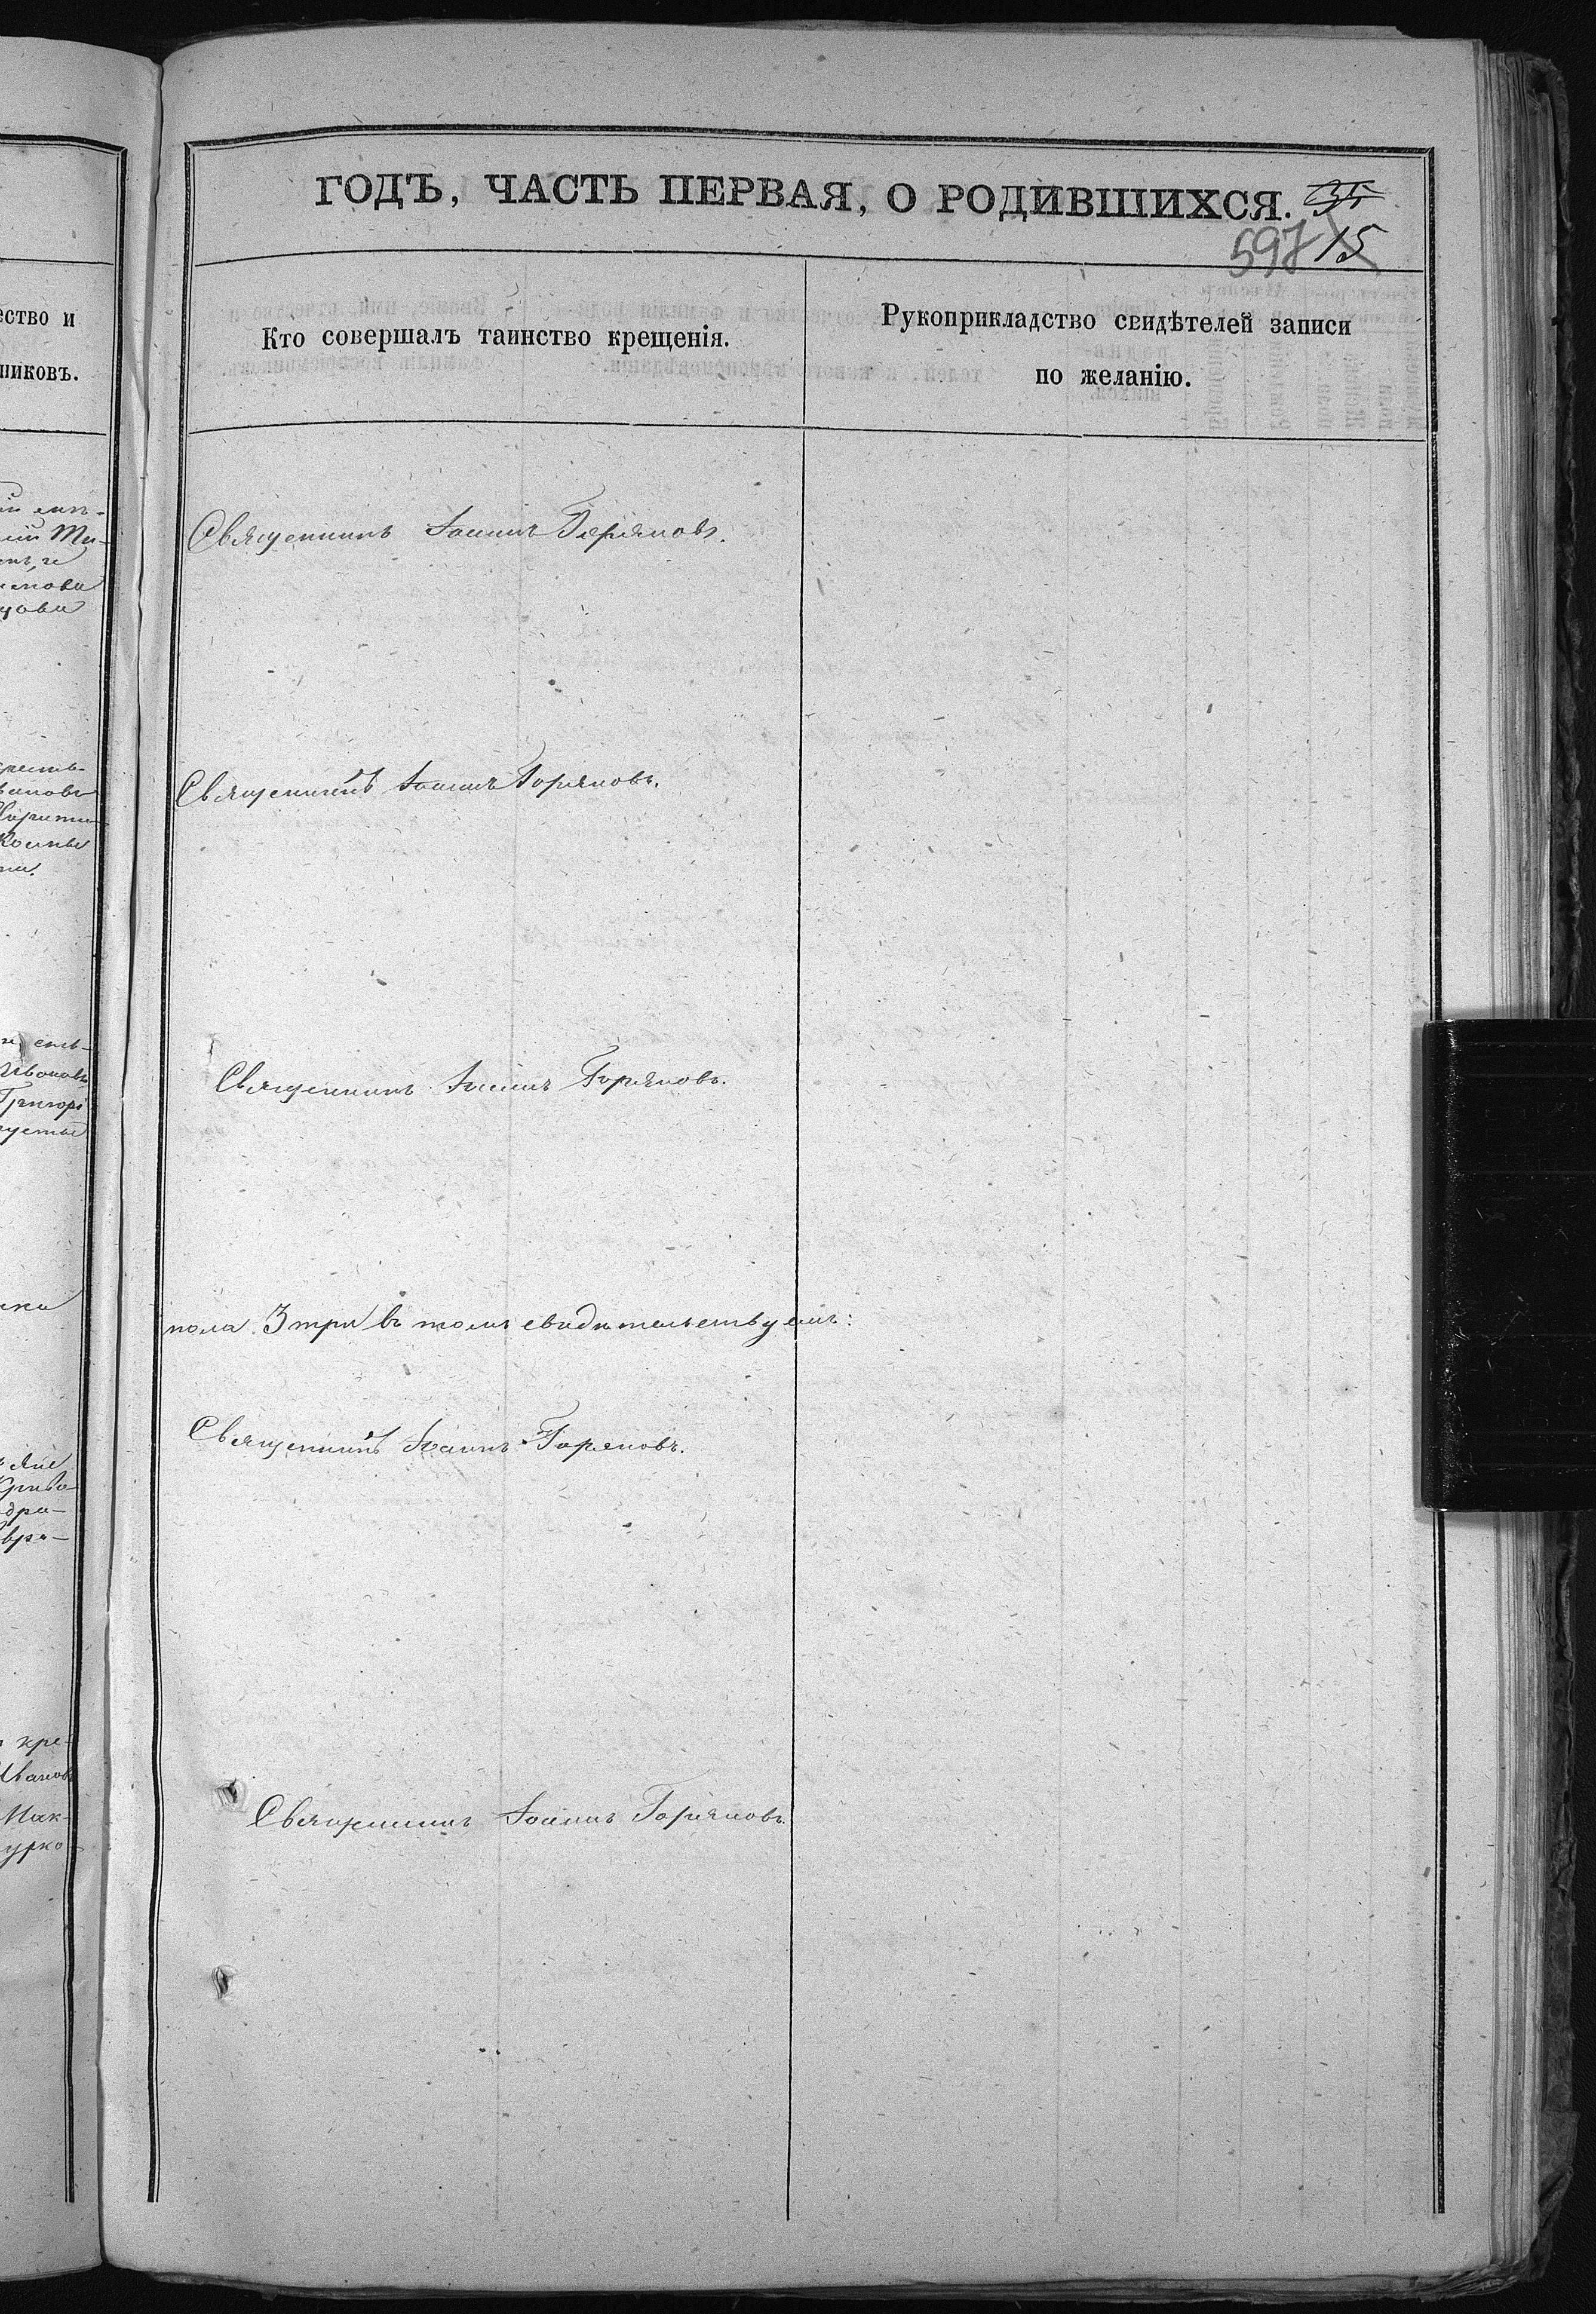 ГОДЪ, ЧАСТЬ ПЕРВАЯ, О РОДИВШИХСЯ.
597 15
ество и
никовъ.
Кто совершалъ таинство крещенія.
Рукоприкладство свидѣтелей записи
по желанію.
Священникъ Іоаннъ Горяновъ.
Священникъ Іоаннъ Горяновъ.
Священникъ Іоаннъ Горяновъ.
пола 3 три въ томъ свидѣтельствуемъ:
Священникъ Іоаннъ Горяновъ.
Священникъ Іоаннъ Горяновъ.